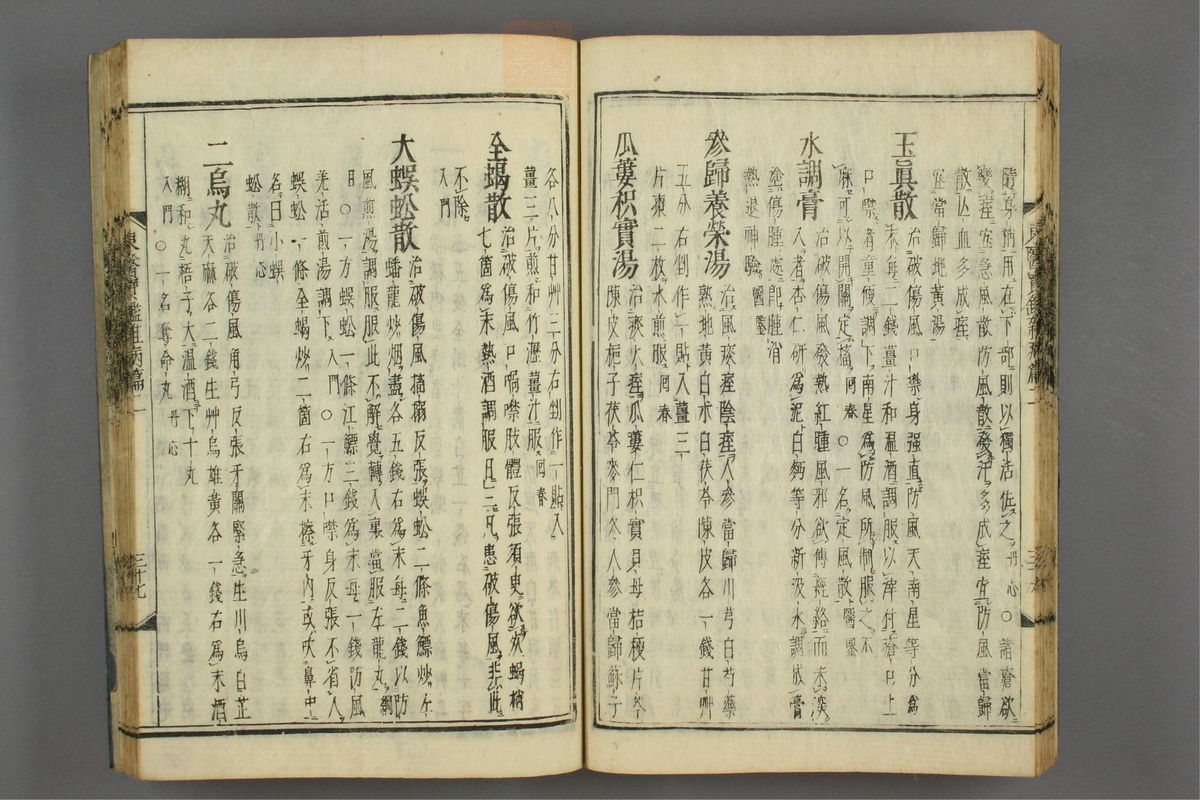 隨身所用在下部則以獨活佐之丹心○諸瘡欲
變痓宜急風散防風散發汗多成痓宜防風當歸
散亡血多成痓
宜當歸地黃湯
玉眞散
治破傷風口噤身强直防風天南星等分爲
末每二錢薑汁和温酒調服以滓付瘡口上
口噤者童便調下南星爲防風所制服之不
麻可以開關定搐回春○一名定風散醫鑒
水調膏
治破傷風發熱紅腫風邪欲傳經絡而未深
入者杏仁研爲泥白麪等分新汲水調成膏
塗傷腫處卽腫消
熱退神驗醫鑒
參歸養榮湯
治風痰痓陰痓人參當歸川芎白芍藥
熟地黃白朮白茯苓陳皮各一錢甘艸
五分右剉作一貼入薑三
片棗二枚水煎服回春
瓜蔞枳實湯
治痰火痓瓜蔞仁枳實貝母桔梗片芩
陳皮梔子茯苓麥門冬人參當歸蘇子
各八分甘艸三分右剉作一貼入
薑三片煎和竹瀝薑汁服回春
全蝎散
治破傷風口喎噤肢體反張須臾欲死蝎梢
七箇爲末熱酒調服日三凡患破傷風非此
不除
入門
大蜈蚣散
治破傷風搐搦反張蜈蚣二條魚鰾炒左
蟠龍炒烟盡各五錢右爲末每二錢以防
風煎湯調服服此不解覺轉入裏當服左龍丸綱
目○一方蜈蚣一條江鰾三錢爲末每一錢防風
羌活煎湯調下入門○一方口噤身反張不省人
蜈蚣一條全蝎炒二箇右爲末擦牙內或吹鼻中
名曰小蜈
蚣散丹心
二烏丸
治破傷風角弓反張牙關緊急生川烏白芷
天麻各二錢生艸烏雄黃各一錢右爲末酒
糊和丸梧子大温酒下十丸
入門○一名奪命丸丹心
三十七